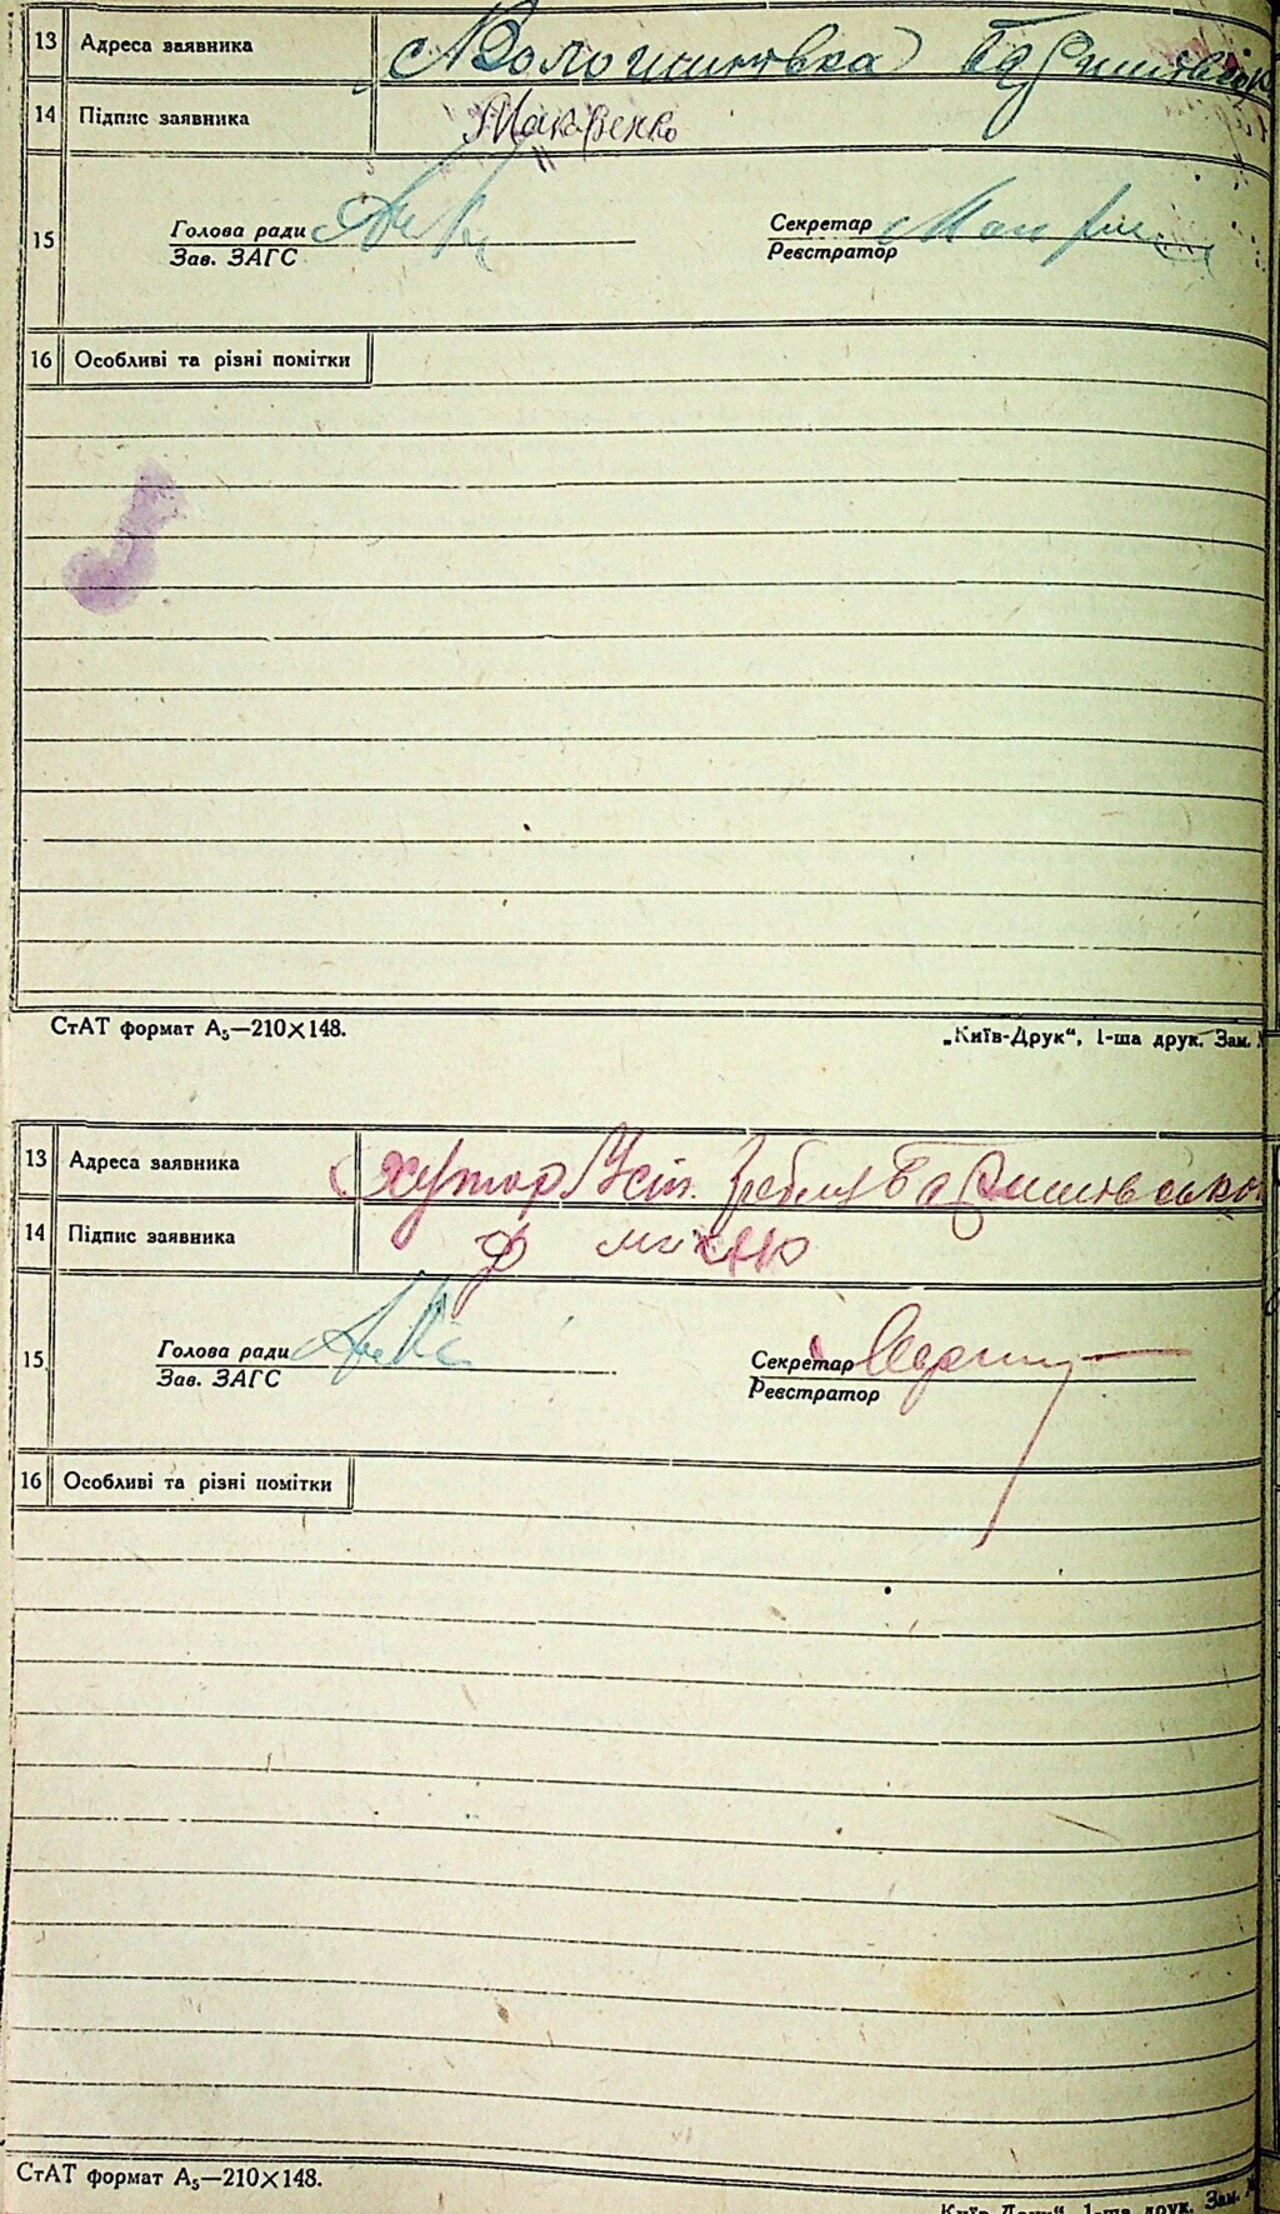 13 Адреса заявника с Волошинівка Баришівсьок
14 Підпис заявника Макаренко
15 Голова ради Секретар
Зав. ЗАГС Реєстратор
16 Особливі та різні помітки
СтАТ формат А5—210×148. „Київ-Друк“, 1-ша друк. Зам.
13 Адреса заявника хутор Баришівсько
14 Підпис заявника
15 Голова ради Секретар
Зав. ЗАГС Реєстратор
16 Особливі та різні помітки
СтАТ формат А5—210×148.
Київ-Друк“, 1-ша друк. Зам.